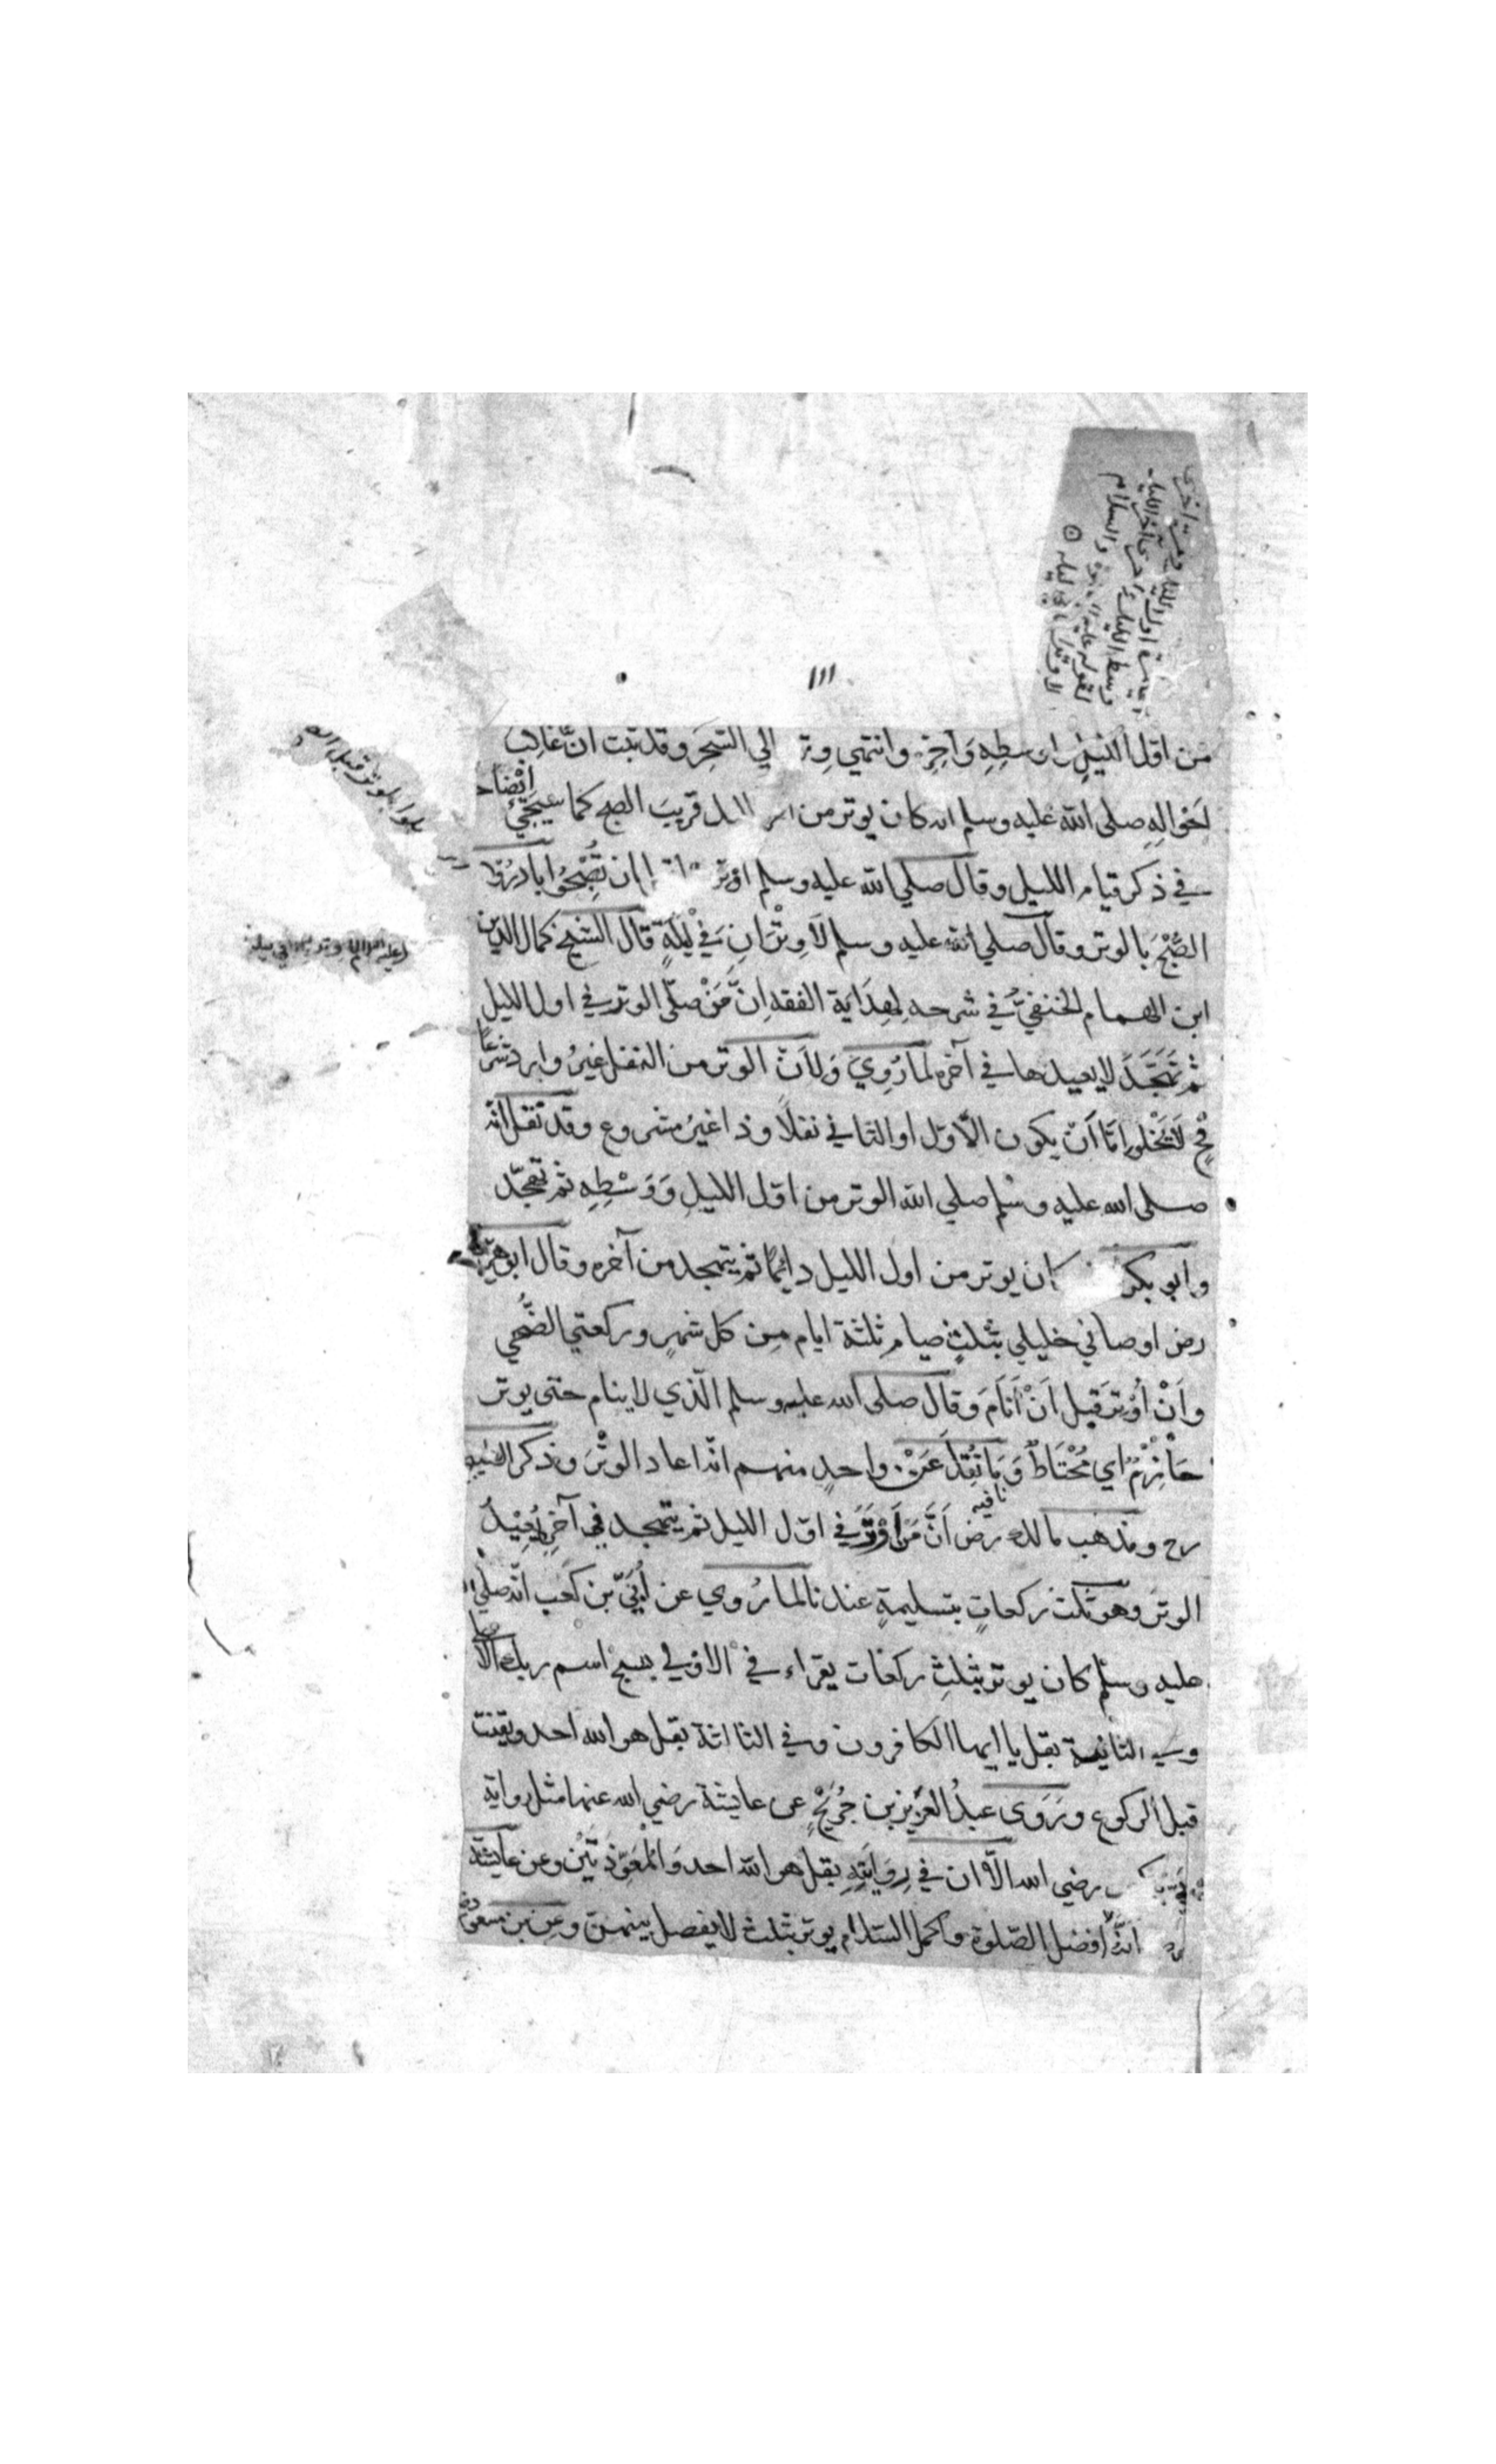 ١١١
من اوّل الليل واوسطِهِ وَآخِرِه وانتهي وِتر الي السَّحَرِ وقد ثبت انّ غالِب
اَحْوالِهِ صلى الله عليه وسلم انه كان يوتر من الليل قريبَ الصبح كما سيجيّ اِيْضاح
في ذكر قيام الليل وقال صلي الله عليه وسلم اوتر ان تُصْبِحُوا بادرُوا
الصُّبْحَ بالوتر وقال صلي الله عليه وسلم لَا وِتْرَانِ فِيْ لَيلَةٍ قال الشيخ كمال الدين
ابن الهمام الحنفيّ في شرحه لِهِدَاية الفقه اِنَّ مَنْ صلّى الوتر في اول الليل
ثم تَهَجَّدَ لا يعيدها في آخره لمَا رُوِيَ وَلِاَنّ الوتر من النفل غيرُ وارد شَرْعًا
فَحٍ لَا يَخْلُو اِمَّا اَنْ يكون الاّوّل او الثاني نفلًا وذا غيرُ مشروع وقد نقل انّه
صلى الله عليه وسلم صلي الوتر من اوّل الليلِ وَوَسْطِهِ ثم تهجّد
وابو بكر كان يوتر من اول الليل دائِمًا ثم يتهجد من آخره وقال ابو هريرة
رض اوصاني خليلي بثلثٍ صيام ثلثة ايام مِن كل شهرٍ وركعتي الضُّحي
واَنْ اُوْتِرَ قبل اَنْ اَنَامَ وقال صلى الله عليه وسلم الّذي لا ينام حتى يوتر
حَازِمٌ اي مُحْتَاطٌ وَمَا نُقِلَ عَنْ واحدٍ منهم انّه اعاد الوِتْرَ وذكر
رح ومذهب مالك رض اَنَّ مَنْ اَوْتَرَ في اوّل الليل ثم يتهجد في آخرِه يُعِيْدُ
الوتر وهو ثلث ركعاتٍ بتسليمةٍ عندنا لما رُوي عن اُبَيّ بن كعب انّه صلي الله
عليه وسلم كان يوتر بثلثِ ركعات يقراء في الاولي بسبح اسم ربك الاعلي
وفي الثانية بقل يا ايها الكافرون وفي الثالثة بقل هو الله احد ويقنت
قبل الركوع ورَوَى عبدُ العزيز بن جُرَيْجٍ عن عايشة رضي الله عنها مثل رواية
رضي الله الّا ان في رِوَايَتِهِ بقل هو الله احد وَالْمُعَوِّذتَيْنِ وعن عايشة
انّه افضل الصّلوة واكمل السّلام يوتر بثلث لا يفصل بينهنّ وعن بن مسعود